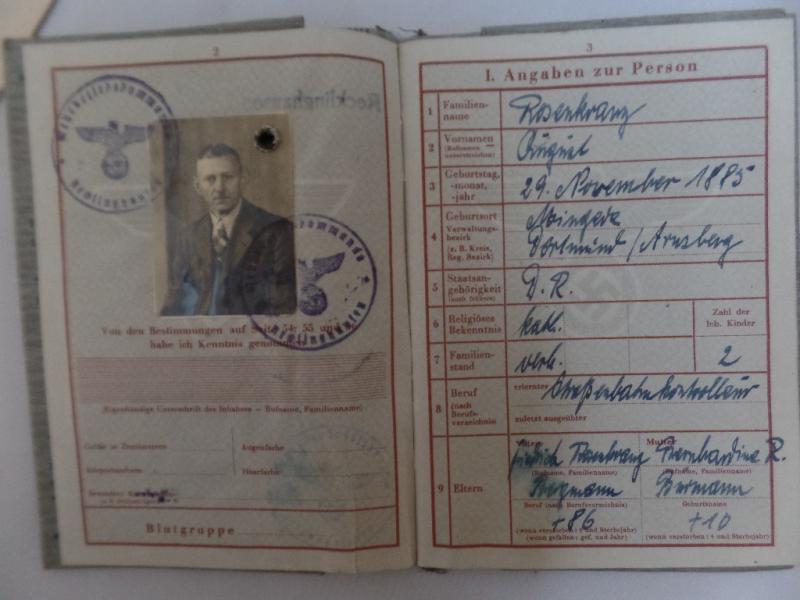 2
Recklinghausen
Recklinghausen
Von den Bestimmungen auf Seite 54, 55 und
habe ich Kenntnis genommen
(Eigenhändige Unterschrift des Inhabers – Rufname, Familienname)
Größe in Zentimetern
Augenfarbe
Haarfarbe
Blutgruppe
3
I. Angaben zur Person
1 Familien-
name
Rosenkranz
2 Vornamen
(Rufnamen
unterstreichen)
August
3 Geburtstag,
-monat,
-jahr
29. November 1885
4 Geburtsort
Verwaltungs-
bezirk
(z. B. Kreis,
Reg. Bezirk)
Mengede
Dortmund / Arnsberg
5 Staatsan-
gehörigkeit
(auch frühere)
D. R.
6 Religiöses
Bekenntnis
kath.
Zahl der
leb. Kinder
7 Familien-
stand
verh.
2
8 Beruf
(nach
Berufs-
verzeichnis)
erlernter
Straßenbahnkontrolleur
zuletzt ausgeübter
9 Eltern
Vater
Mutter
Rosenkranz
Bernhardine R.
(Rufname, Familienname)
(Rufname, Familienname)
Bergmann
Bermann
Beruf (nach Berufsverzeichnis)
Geburtsname
+86
+10
(wenn verstorben: † und Sterbejahr)
(wenn gefallen: gef. und Jahr)
(wenn verstorben: † und Sterbejahr)